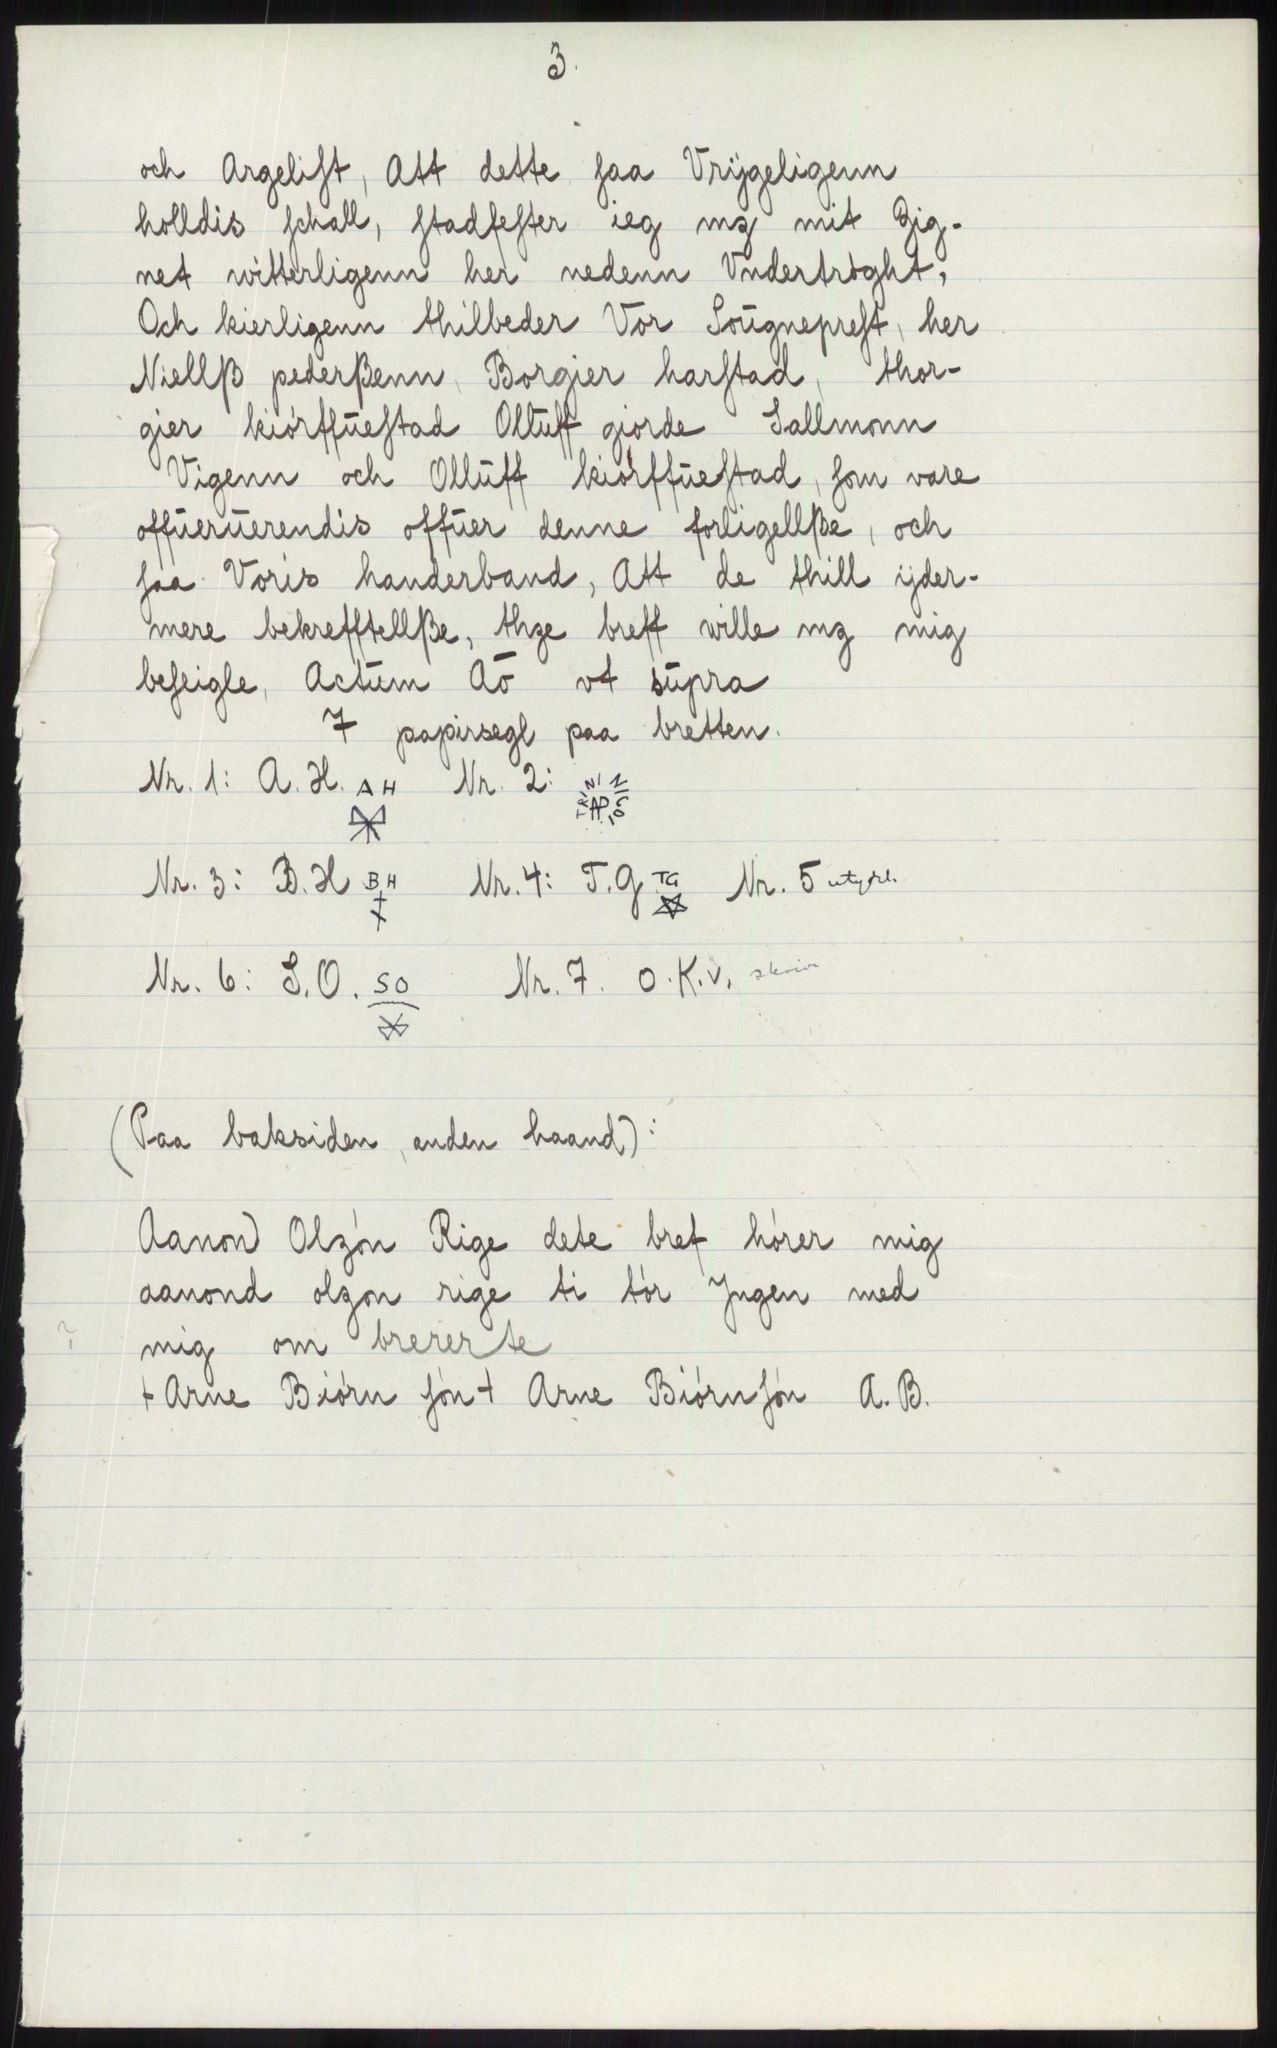 3.
och Argelist, Att dette saa Vrijgeligenn
holldis schall, stadfester ieg mz mit Zig-
net witterligenn her nedenn Vndertrÿght,
Och kierligenn thilbeder Vor Sougneprest, her
Niellß pederßenn, Borgier harstad, thor-
gier kiórffūestad Ollūff giorde Sallmonn
Vigenn och Ollūff kiórffūestad, som vare
offūerūerendis offūer denne forligellße, och
saa Voris handerband, Att de thill ijder-
mere bekrefftellße, thze breff wille mz mig
beseigle, Actūm Aō vt sūpra
7 papirsegl paa bretten.
Nr. 1: A. H. A H Nr. 2: AP
Nr. 3: B. H B H Nr. 4: T. G TG Nr. 5 utydel.
Nr. 6: S. O. SO Nr. 7. O. K. V. skriv
(Paa baksiden, anden haand):
Aanond Olzón Rige dete bref hórer mig
aanond olzon rige ti tór Jngen med
? mig om brererte
+ Arne Biórn són + Arne Biórnsón A. B.